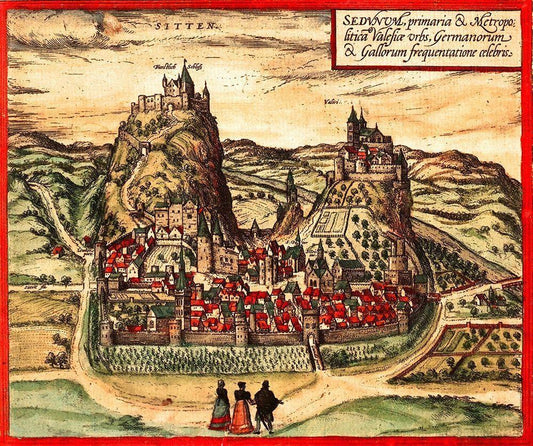 SITTEN.
SEDVNVM, primaria & Metropo,
litica Valesiæ vrbs, Germanorum
& Gallorum frequentatione celebris.
Schloß
Valeri